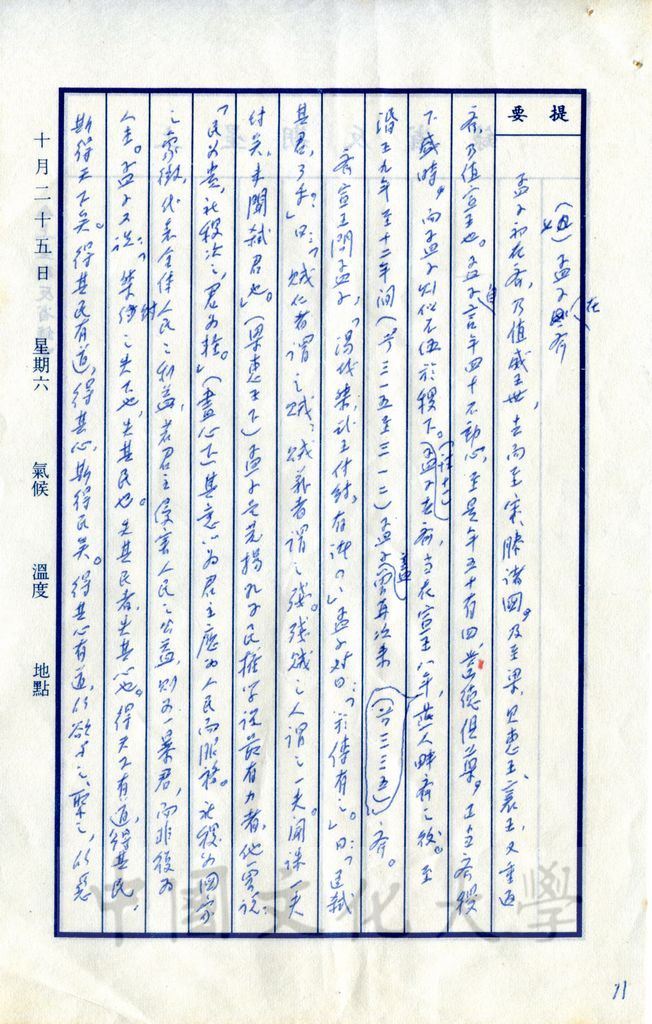 提要
(四) 孟子在齊
孟子初在齊，乃值威王世，去而至宋滕諸國，及至梁，見惠王、襄王，又重返
齊，乃值宣王也。孟子自言年四十不動心，至是年五十有四，齒德俱尊，正當齊稷
下盛時，而孟子則似不伍於稷下。(註十一)孟子去齊，當在宣王八年，燕人畔齊之後。至
湣王九年至十二年間(前三一五至三一二)孟子再次來(前三三五)齊。
齊宣王問孟子，「湯放桀，武王伐紂，有諸？」孟子對曰：「於傳有之。」曰：「臣弒
其君，可乎？」曰：「賊仁者謂之賊，賊義者謂之殘。殘賊之人謂之一夫。聞誅夫
紂矣，未聞弒君也。」(梁惠王下)孟子是光揚孔子民權學說最有力者，他曾說：
「民為貴，社稷次之，君為輕。」(盡心下)其意以為君主應為人民而服務。社稷為國家
之象徵，代表全體人民之利益，若君主侵害人民之公益，則為一暴君，而非復為
人主。孟子又說：「桀紂之失天下也，失其民也。失其民者，失其心也。得天下有道，得其民，
斯得天下矣。得其民有道，得其心，斯得民矣。得其心有道，所欲與之，聚之，所惡
十月二十五日 星期六 氣候 溫度 地點
中國文化大學
11